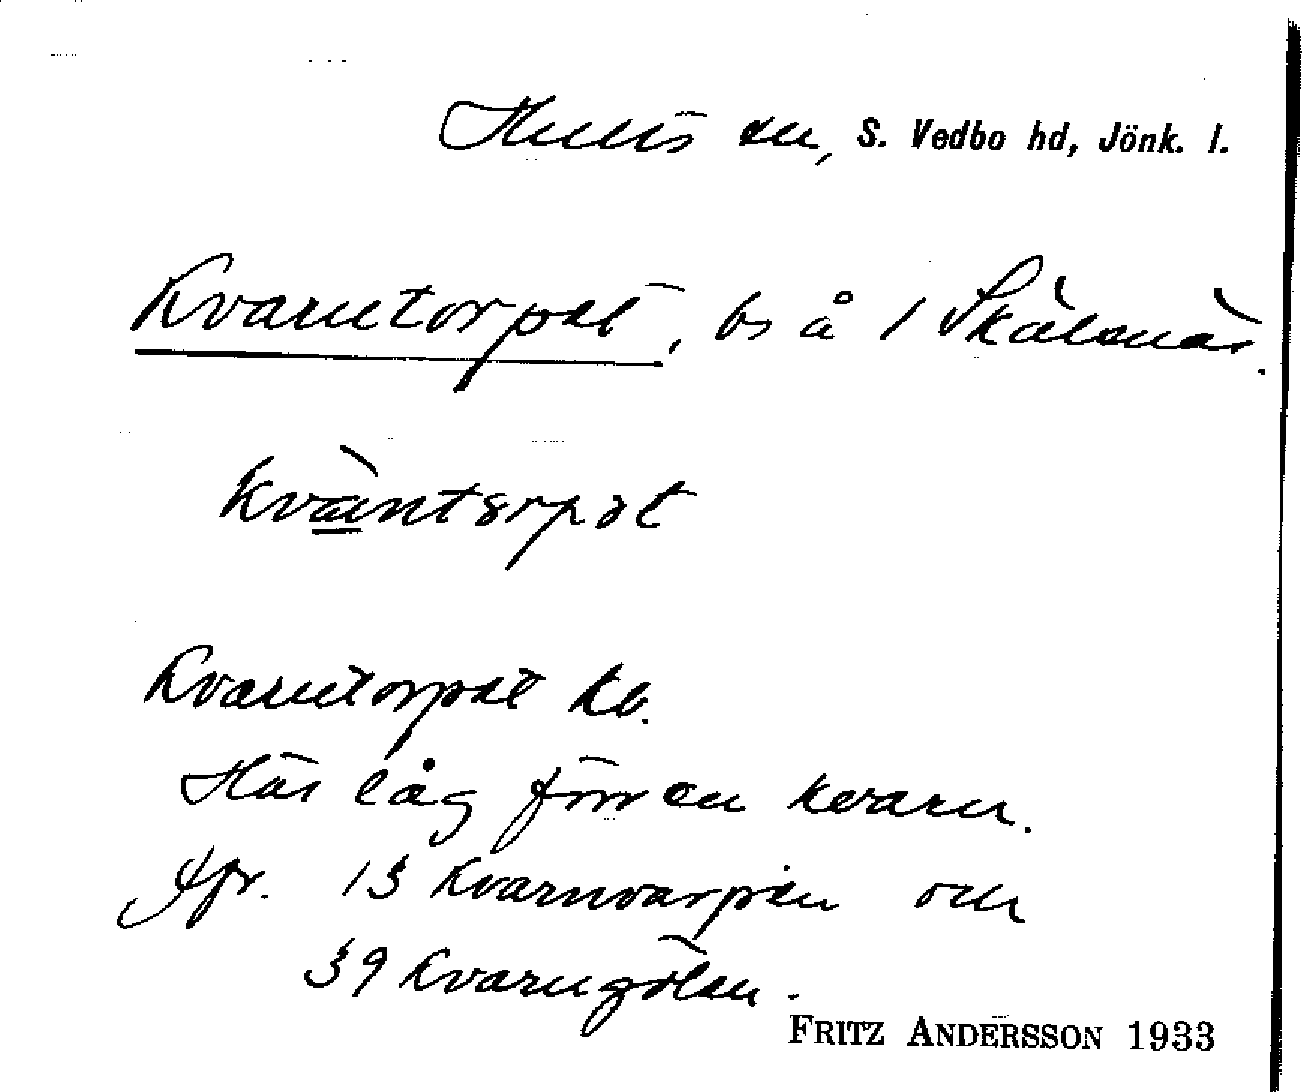 Hults sn, S. Vedbo hd, Jönk. l.
Kvarntorpet, bs å 1 Skälsnäs.
kvàntorpət
Kvarntorpet kb.
Här låg förr en kvarn.
Jfr. 13 Kvarnvarpen och
39 Kvarngölen.
FRITZ ANDERSSON 1933